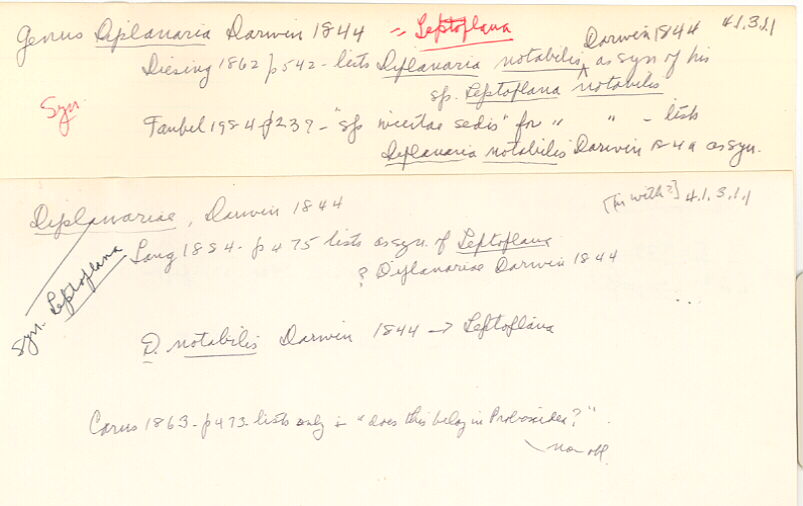 Genus Diplanaria Darwin 1844 = Leptoplana 4.1.3.1.1
Diesing 1862 p542 - lists Diplanaria notabilis Darwin 1844 as syn of his
sp. Leptoplana notabilis
Syn.
Faubel 1984 p239 - "sp incertae sedis" for " " - lists
Diplanaria notabilis Darwin 1844 as syn.
Diplanariae, Darwin 1844 [in with?] 4.1.3.1.1
Lang 1884 - p475 lists as syn. of Leptoplana
? Diplanariae Darwin 1844
syn. Leptoplana
D. notabilis Darwin 1844 → Leptoplana
Carus 1863 - p473 - lists only & "does this belong in Proboscidea?"